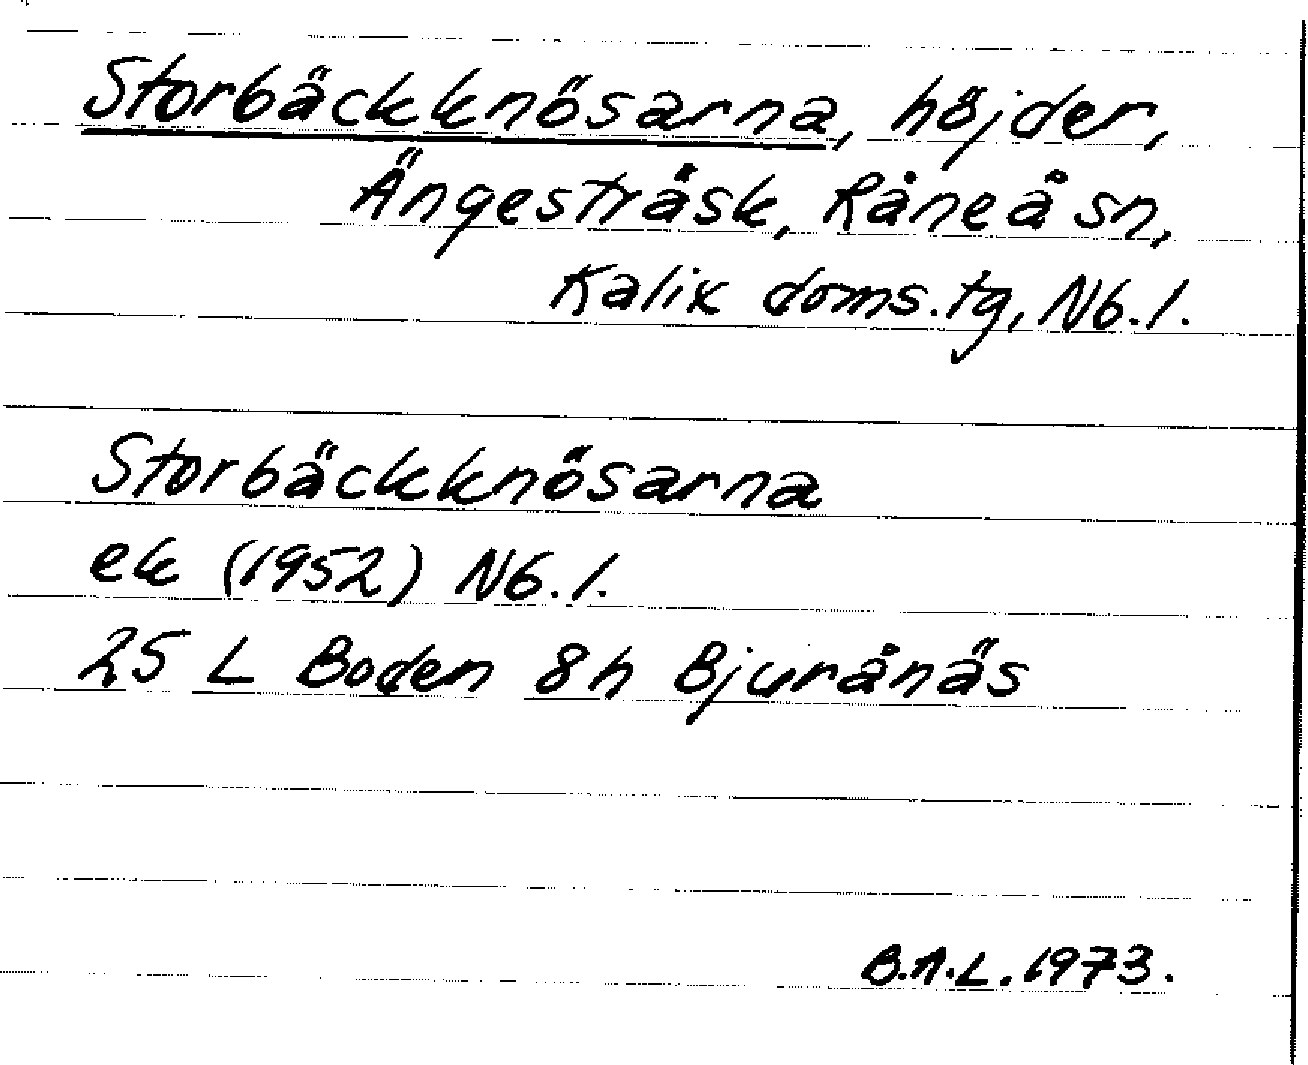 Storbäckknösarna, höjder,
Ängesträsk, Råneå sn,
Kalix doms.tg, Nb.l.
Storbäckknösarna
ek (1952) Nb.l.
25 L Boden 8h Bjurånäs
B.A.L. 1973.